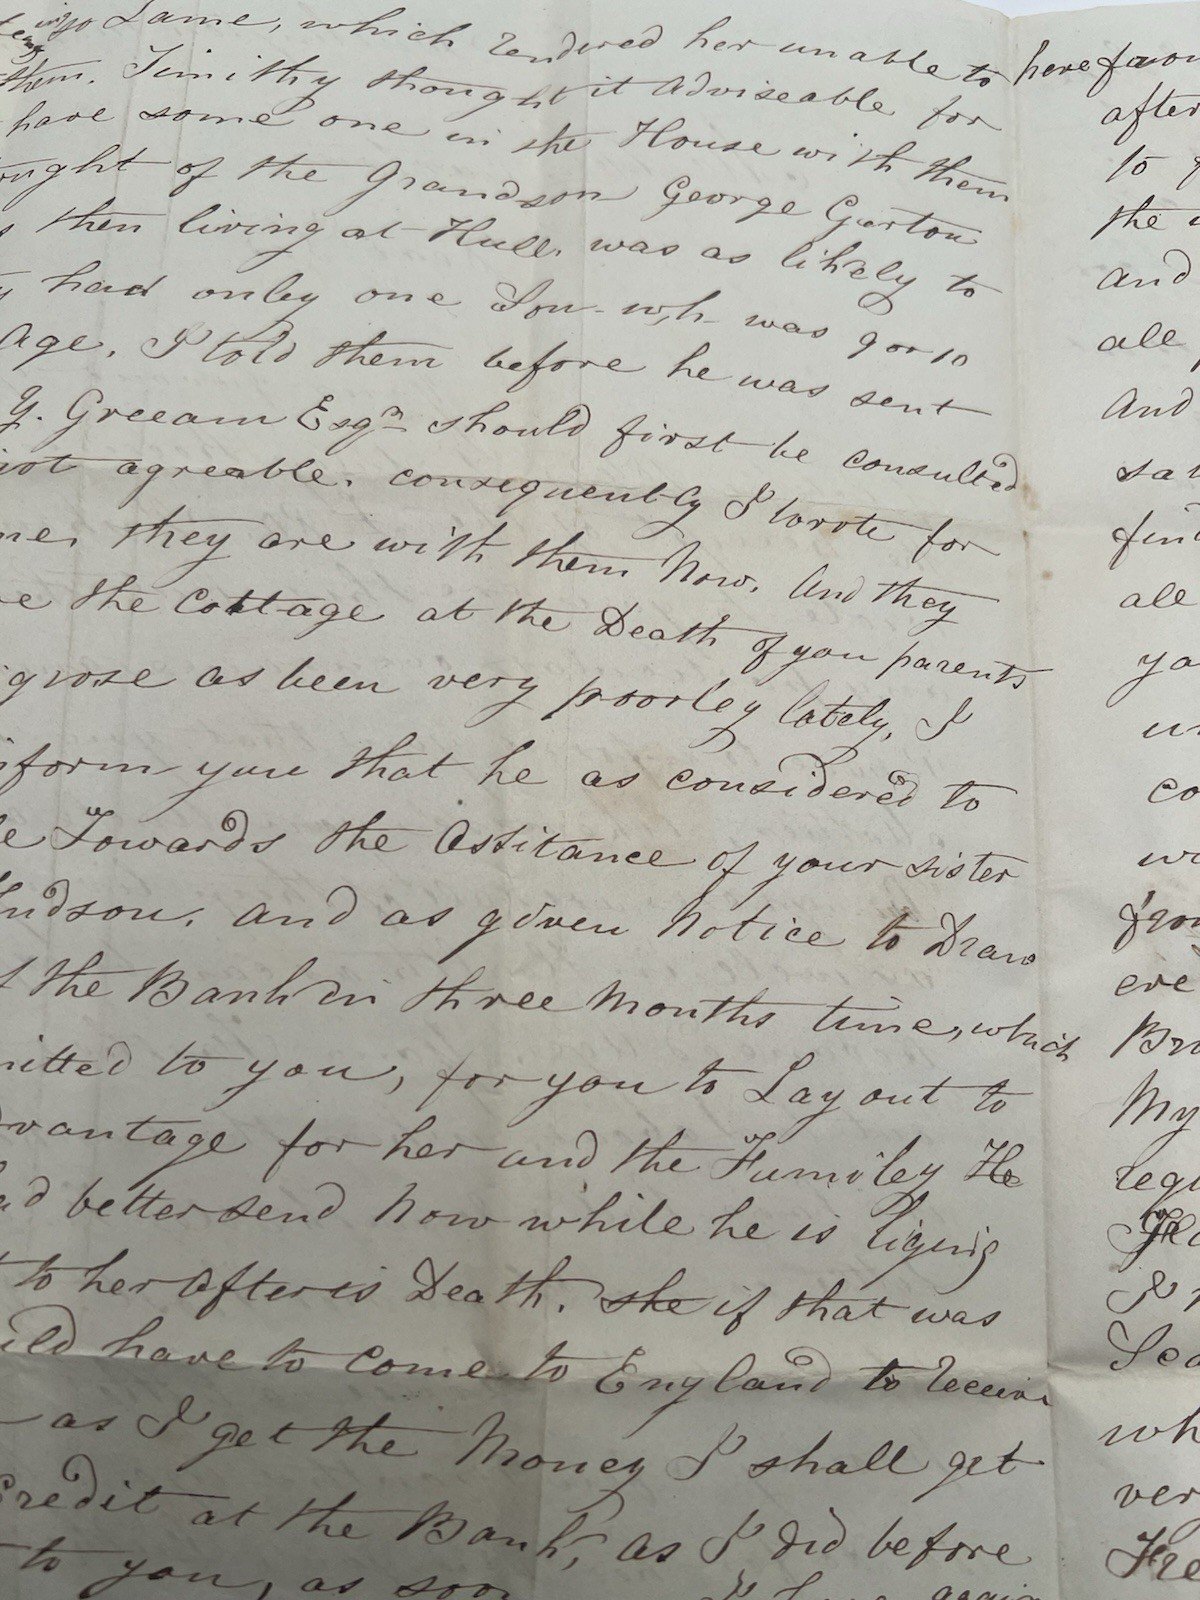 so Lame, which rendered her unable to
them. Timithy thought it adviseable for
have some one in the House with them
ought of the Grandson George Garton
s then living at Hull. was as likely to
y had only one Son - wh - was 9 or 10
Age. I told them before he was sent
Y. Greeam Esqr should first be consulted
not agreable. consequently I wrote for
me, they are with them Now. And they
ve the Cottage at the Death of you parents
grose as been very poorley lately, I
nform you that he as considered to
le Towards the Assitance of your sister
Hudson, and as given Notice to Draw
t the Bank in three Months time, which
mitted to you, for you to Lay out to
dvantage for her and the Fumiley He
ad better send Now while he is liging
t to her after is Death. she if that was
uld have to come to England to receive
as I get the Money I shall get
Credit at the Bank, as I did before
t to you, as soon
again
here favou
after
to
the
and
all
And
sa
find
all
ya
un
co
wi
from
ere
Bro
My
requ
I
Sea
wh
ver
Fre